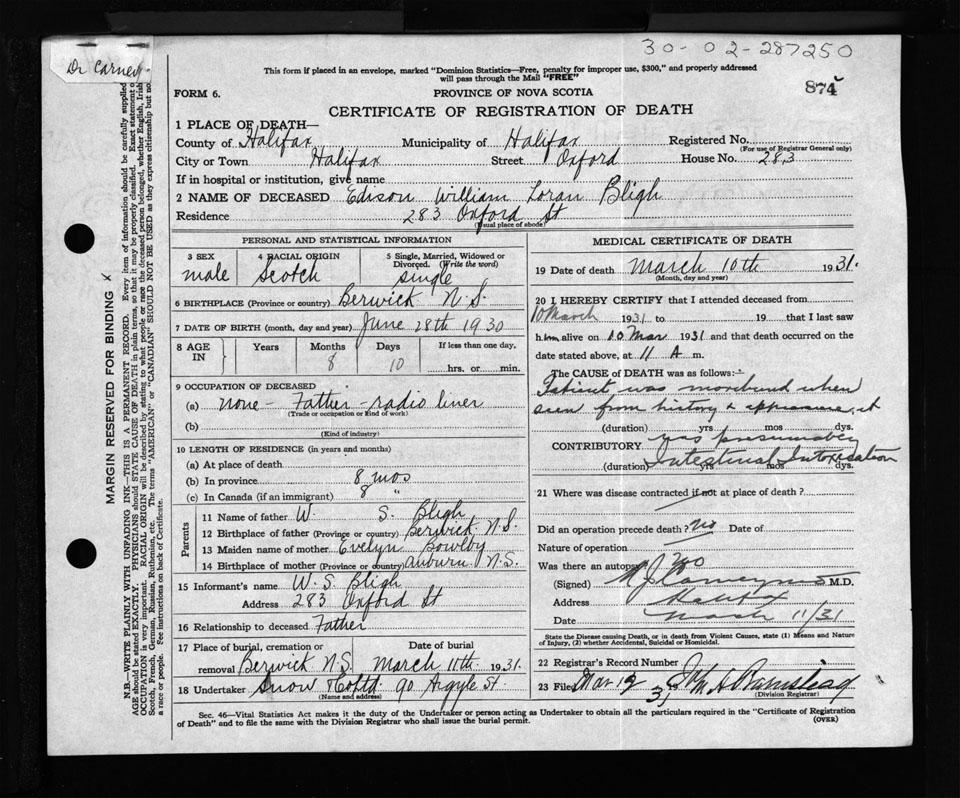 30-02-287250
Dr Carney
This form if placed in an envelope, marked "Dominion Statistics—Free, penalty for improper use, $300," and properly addressed
will pass through the Mail "FREE"
874
FORM 6.
PROVINCE OF NOVA SCOTIA
CERTIFICATE OF REGISTRATION OF DEATH
1 PLACE OF DEATH—
County of Halifax Municipality of Halifax Registered No.
(For use of Registrar General only)
City or Town Halifax Street Oxford House No. 283
If in hospital or institution, give name
2 NAME OF DECEASED Edison William Loran Bligh
Residence 283 Oxford St
(Usual place of abode)
PERSONAL AND STATISTICAL INFORMATION
3 SEX 4 RACIAL ORIGIN 5 Single, Married, Widowed or
Divorced. (Write the word)
male Scotch single
6 BIRTHPLACE (Province or country) Berwick N.S.
7 DATE OF BIRTH (month, day and year) June 28th 1930
8 AGE IN Years Months Days If less than one day,
8 10 hrs. or min.
9 OCCUPATION OF DECEASED
(a) none - Father - radio liner
(Trade or occupation or Kind of work)
(b)
(Kind of industry)
10 LENGTH OF RESIDENCE (in years and months)
(a) At place of death
(b) In province 8 mos
(c) In Canada (if an immigrant) 8 "
Parents
11 Name of father W. S. Bligh
12 Birthplace of father (Province or country) Berwick N.S.
13 Maiden name of mother Evelyn Bowlby
14 Birthplace of mother (Province or country) Auburn N.S.
15 Informant's name W. S. Bligh
Address 283 Oxford St
16 Relationship to deceased Father
17 Place of burial, cremation or Date of burial
removal Berwick N.S. March 11th 1931
18 Undertaker Snow & Co Ltd 90 Argyle St.
(Name and address)
MEDICAL CERTIFICATE OF DEATH
19 Date of death March 10th 1931.
(Month, day and year)
20 I HEREBY CERTIFY that I attended deceased from
10 March 1931 to 19 that I last saw
him alive on 10 Mar 1931 and that death occurred on the
date stated above, at 11 A m.
The CAUSE OF DEATH was as follows:—
Patient was moribund when
seen from history & appearance, it
(duration) yrs mos dys.
CONTRIBUTORY was presumably
Intestinal Intoxication
(duration) yrs mos dys.
21 Where was disease contracted if not at place of death?
Did an operation precede death? No Date of
Nature of operation
Was there an autopsy No
(Signed) M.D.
Address Halifax
Date March 11/31
State the Disease causing Death, or in death from Violent Causes, state (1) Means and Nature
of Injury, (2) whether Accidental, Suicidal or Homicidal.
22 Registrar's Record Number
23 Filed Mar 12 31
(Division Registrar)
Sec. 46—Vital Statistics Act makes it the duty of the Undertaker or person acting as Undertaker to obtain all the particulars required in the "Certificate of Registration
of Death" and to file the same with the Division Registrar who shall issue the burial permit.
(OVER)
MARGIN RESERVED FOR BINDING X
N.B.—WRITE PLAINLY WITH UNFADING INK—THIS IS A PERMANENT RECORD. Every item of information should be carefully supplied
AGE should be stated EXACTLY. PHYSICIANS should STATE CAUSE OF DEATH in plain terms, so that it may be properly classified. Exact statement o
OCCUPATION is very important. RACIAL ORIGIN will be described by stating to what people or race the deceased person belonged, whether English, Irish
Scotch, French, German, Russian, Ruthenian, etc. The terms "AMERICAN" or "CANADIAN" SHOULD NOT BE USED as they express citizenship but no
a race or people. See instructions on back of Certificate.